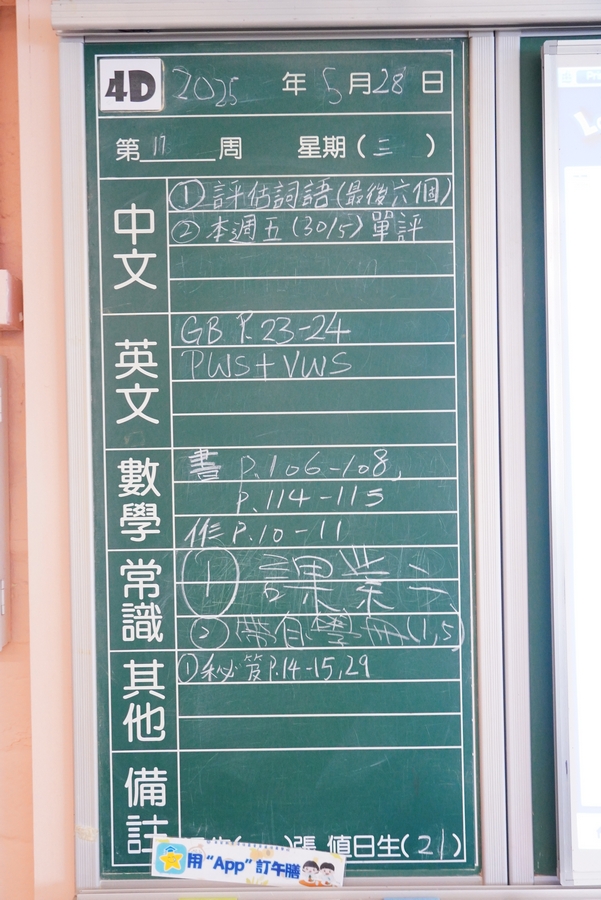 4D 2025 年 5 月 28 日
第 17 周 星期 ( 三 )
中文
① 評估詞語 (最後六個)
② 本週五 (30/5) 單評
英文
GB P.23-24
PWS + VWS
數學
書 P.106-108,
P.114-115
作 P.10-11
常識
① 課業二
② 帶自學冊 (1,5)
其他
① 秘笈 P.14-15,29
備註
張 值日生( 21 )
用 “App” 訂午膳